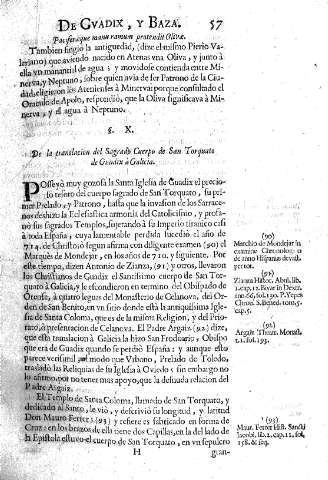 DE GVADIX, Y BAZA. 57
Paciferaque manu ramum pratendit Olivæ.
Tambien fingiò la antiguedad, (dize el mismo Pierio Va-
leriano) que aviendo nacido en Atenas vna Oliva, y junto à
ella vn manantial de agua; y moviendose contienda entre Mi-
nerva, y Neptuno, sobre quien avia de ser Patrono de la Ciu-
dad; eligieron los Atenienses à Minerva; porque consultado el
Oraculo de Apolo, respondiò, que la Oliva significava à Mi-
nerva, y el agua à Neptuno.
§. X.
De la translacion del Sagrado Cuerpo de San Torquato
de Guadix à Galicia.
POsseyò muy gozosa la Santa Iglesia de Guadix el precio-
so tesoro del cuerpo sagrado de San Torquato, su pri-
mer Prelado, y Patrono, hasta que la invasion de los Sarrace-
nos deshizo la Eclesiastica armonia del Catolicismo, y profa-
nò sus sagrados Templos, sujetando à su Imperio tiranico casi
à toda España; cuya lamentable perdida sucediò el año de
714. de Christo; ò segun afirma con diligente examen (90) el
Marquès de Mondejar, en los años de 710. y siguiente. Por
este tiempo, dizen Antonio de Zianza, (91) y otros, llevaron
los Christianos de Guadix el Santissimo cuerpo de San Tor-
quato à Galicia, y le escondieron en termino del Obispado de
Orense, à quatro leguas del Monasterio de Celanova, del Or-
den de San Benito, en vn sitio donde està la antiquissima Igle-
sia de Santa Coloma, que es de la misma Religion, y del Prio-
rato, à presentacion de Celanova. El Padre Argaiz (92) dize,
que esta translacion à Galicia la hizo San Froduario, Obispo
que era de Guadix quando se perdiò España; y aunque esto
parece verisimil, al modo que Vrbano, Prelado de Toledo,
trasladò las Reliquias de su Iglesia à Oviedo; sin embargo no
lo afirmo, por no tener mas apoyo, que la desnuda relacion del
Padre Argaiz.
El Templo de Santa Coloma, llamado de San Torquato, y
dedicado al Santo, le viò, y descriviò su longitud, y latitud
Don Mauro Ferrer, (93) y refiere es fabricado en forma de
Cruz: en los brazos de ella tiene dos Capillas, en la del lado de
la Epistola estuvo el cuerpo de San Torquato, en vn sepulcro
H gran-
(90)
Marchio de Mondejar in
examine Chronolog. o
de anno Hispanæ devast.
per tot.
(91)
Zianza Histor. Abul. lib.
1. cap. 12. Bivar in Dextr.
ann. 66. fol. 130. P. Yepes
Chron. S. Bened. tom. 5.
cap. 5.
(92)
Argaiz Theatr. Monast.
t. 1. fol. 195.
(93)
Maur. Ferrer Hist. Sancti
Iacobi, lib. 2. cap. 12. fol.
158. & seq.